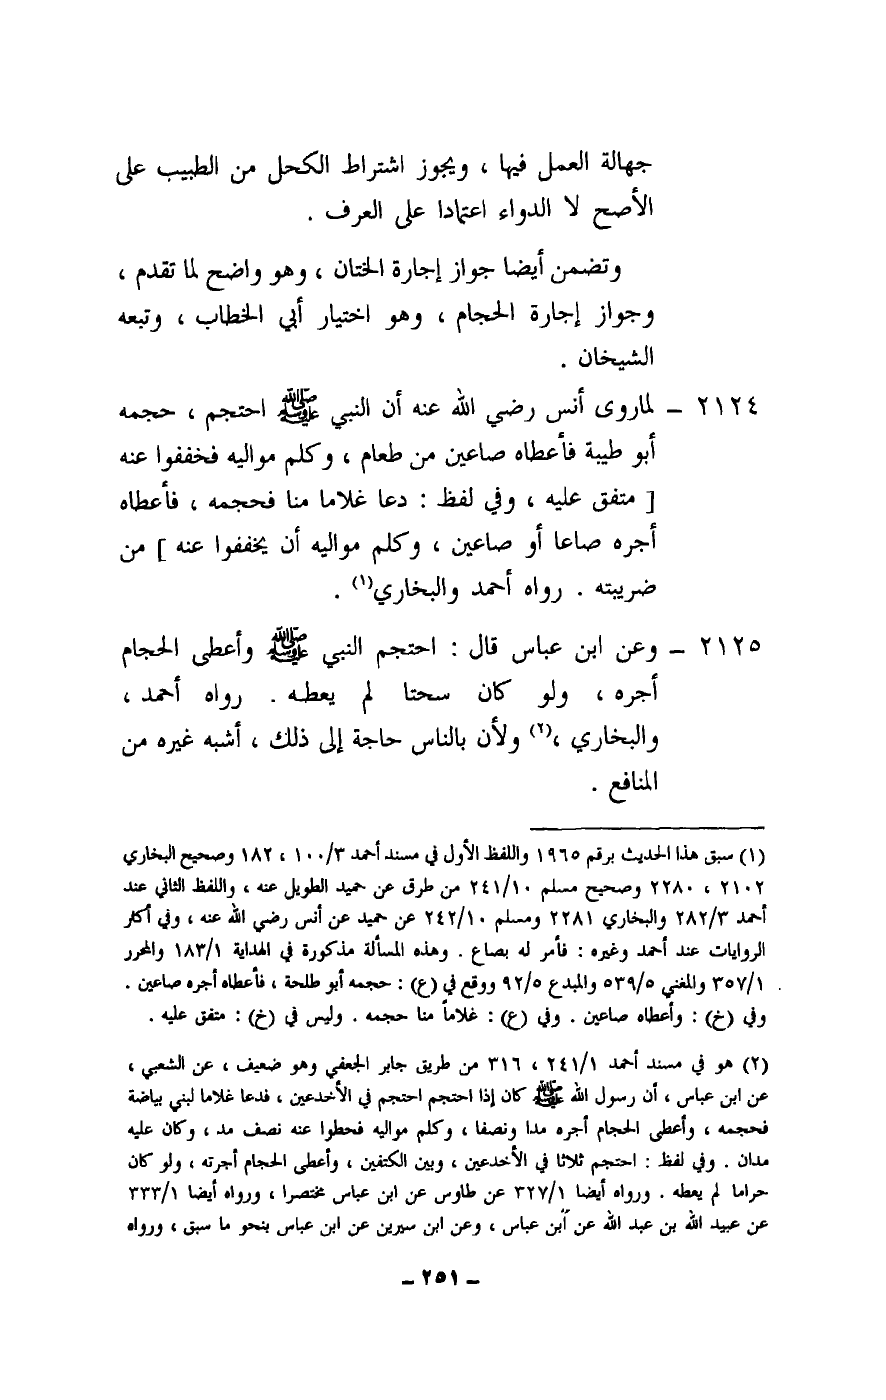 جهالة العمل فيها ، ويجوز اشتراط الكحل من الطبيب على
الأصح لا الدواء اعتمادا على العرف .
وتضمن أيضا جواز إجارة الختان ، وهو واضح لما تقدم ،
وجواز إجارة الحجام ، وهو اختيار أبي الخطاب ، وتبعه
الشيخان .
٢١٢٤ – لماروى أنس رضي الله عنه أن النبي ﷺ احتجم ، حجمه
أبو طيبة فأعطاه صاعين من طعام ، وكلم مواليه فخففوا عنه
[ متفق عليه ، وفي لفظ : دعا غلاما منا فحجمه ، فأعطاه
أجره صاعا أو صاعين ، وكلم مواليه أن يخففوا عنه ] من
ضريبته . رواه أحمد والبخاري(١) .
٢١٢٥ – وعن ابن عباس قال : احتجم النبي ﷺ وأعطى الحجام
أجره ، ولو كان سحتا لم يعطه . رواه أحمد ،
والبخاري ،(٢) ولأن بالناس حاجة إلى ذلك ، أشبه غيره من
المنافع .
(١) سبق هذا الحديث برقم ١٩٦٥ واللفظ الأول في مسند أحمد ١٠٠/٣ ، ١٨٢ وصحيح البخاري
٢١٠٢ ، ٢٢٨٠ وصحيح مسلم ٢٤١/١٠ من طرق عن حميد الطويل عنه ، واللفظ الثاني عند
أحمد ٢٨٢/٣ والبخاري ٢٢٨١ ومسلم ٢٤٢/١٠ عن حميد عن أنس رضي الله عنه ، وفي أكثر
الروايات عند أحمد وغيره : فأمر له بصاع . وهذه المسألة مذكورة في الهداية ١٨٣/١ والمحرر
٣٥٧/١ والمغني ٥٣٩/٥ والمبدع ٩٢/٥ ووقع في (ع) : حجمه أبو طلحة ، فأعطاه أجره صاعين .
وفي (خ) : وأعطاه صاعين . وفي (ع) : غلاماً منا حجمه . وليس في (خ) : متفق عليه .
(٢) هو في مسند أحمد ٢٤١/١ ، ٣١٦ من طريق جابر الجعفي وهو ضعيف ، عن الشعبي ،
عن ابن عباس ، أن رسول الله ﷺ كان إذا احتجم احتجم في الأخدعين ، فدعا غلاما لبني بياضة
فحجمه ، وأعطى الحجام أجره مدا ونصفا ، وكلم مواليه فحطوا عنه نصف مد ، وكان عليه
مدان . وفي لفظ : احتجم ثلاثا في الأخدعين ، وبين الكتفين ، وأعطى الحجام أجرته ، ولو كان
حراما لم يعطه . ورواه أيضا ٣٢٧/١ عن طاوس عن ابن عباس مختصرا ، ورواه أيضا ٣٣٣/١
عن عبيد الله بن عبد الله عن أبن عباس ، وعن ابن سيرين عن ابن عباس بنحو ما سبق ، ورواه
– ٢٥١ –